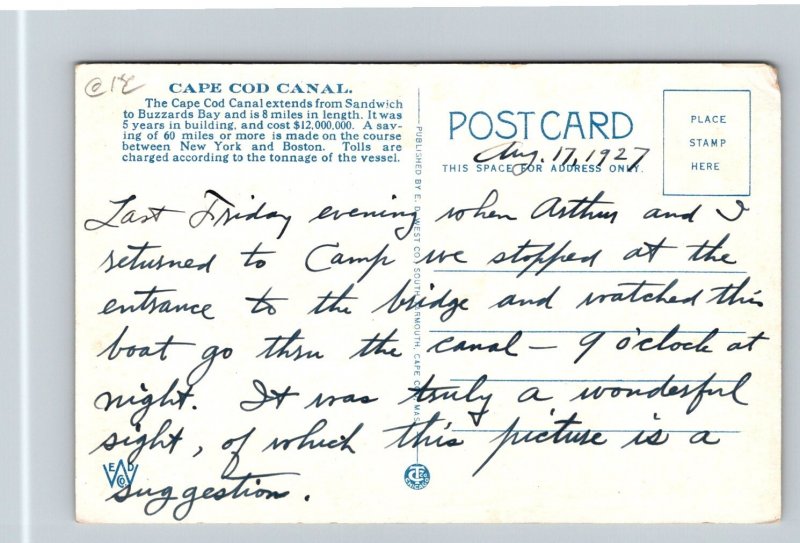 CAPE COD CANAL.
The Cape Cod Canal extends from Sandwich
to Buzzards Bay and is 8 miles in length. It was
5 years in building, and cost $12,000,000. A sav-
ing of 60 miles or more is made on the course
between New York and Boston. Tolls are
charged according to the tonnage of the vessel.
POST CARD
Aug. 17, 1927
THIS SPACE FOR ADDRESS ONLY.
PLACE
STAMP
HERE
PUBLISHED BY E. D. WEST CO., SOUTH YARMOUTH, CAPE COD, MASS.
Last Friday evening when Arthur and I
returned to Camp we stopped at the
entrance to the bridge and watched this
boat go thru the canal — 9 o'clock at
night. It was truly a wonderful
sight, of which this picture is a
suggestion.